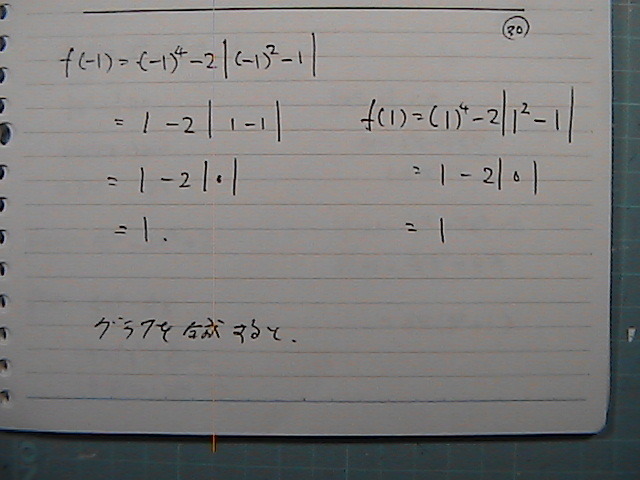 30
f(-1) = (-1)^4 - 2|(-1)^2 - 1|
= 1 - 2|1 - 1|
= 1 - 2|0|
= 1.
f(1) = (1)^4 - 2|1^2 - 1|
= 1 - 2|0|
= 1
グラフを合成すると.